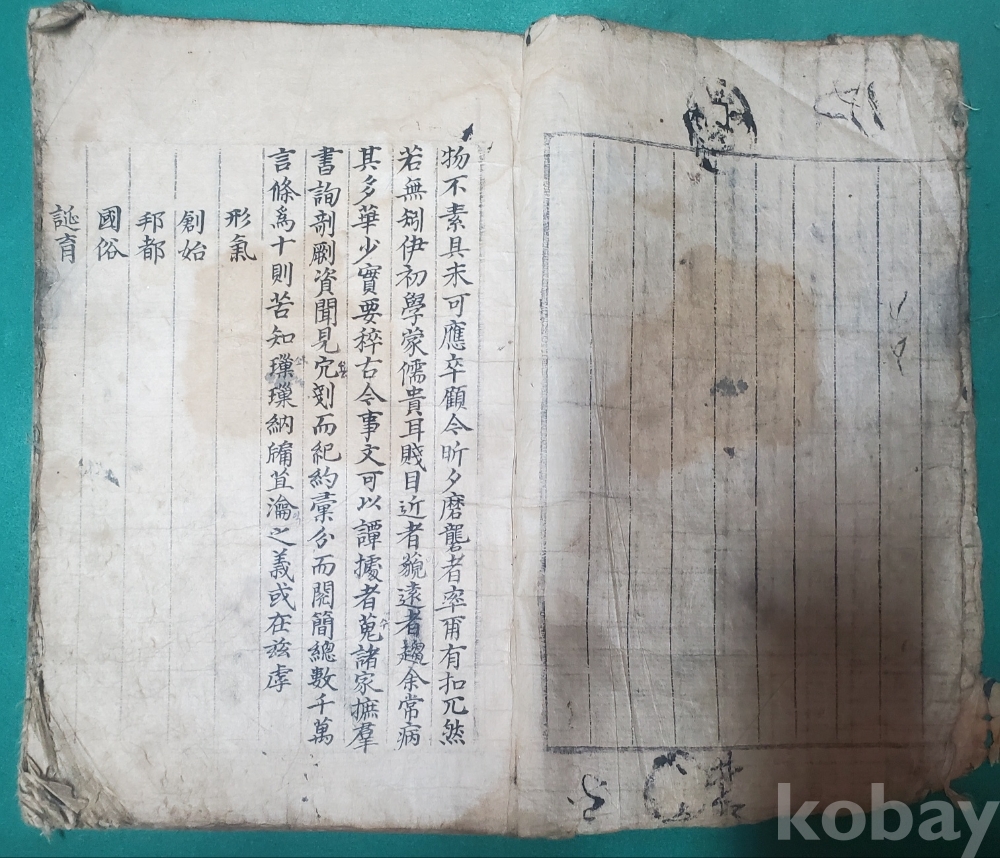 物不素具未可應卒顧今昕夕磨礱者率甭有扣兀然
若無矧伊初學蒙儒貴耳賤目近者藐遠者趨余常病
其多華少實要稡古今事文可以譚據者蒐諸家摭羣
書詢剞劂資聞見究剡而紀約彙分而閱簡總數千萬
言條爲十則苦知璅璅納牖苴瀹之義或在玆虖
形氣
創始
邦都
國俗
誕育
kobay